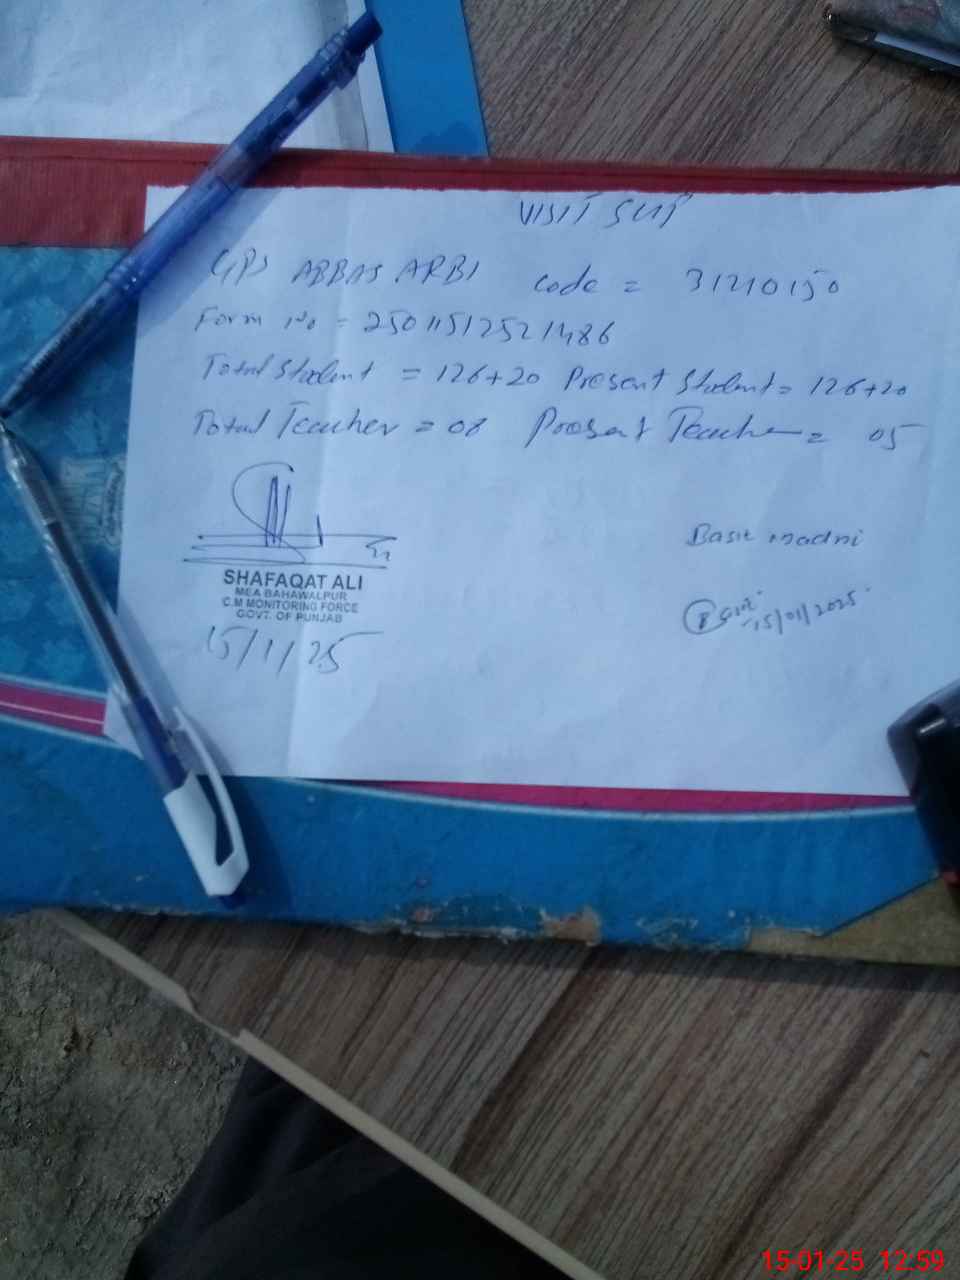 VISIT SLIP
GPS ABBAS ARBI code = 31210150
Form No = 25011512521486
Total Student = 126+20 Present Student = 126+20
Total Teacher = 08 Present Teacher = 05
SHAFAQAT ALI
MEA BAHAWALPUR
C.M MONITORING FORCE
GOVT. OF PUNJAB
15/1/25
Basit madni
Basit
15/01/2025
15-01-25 12:59